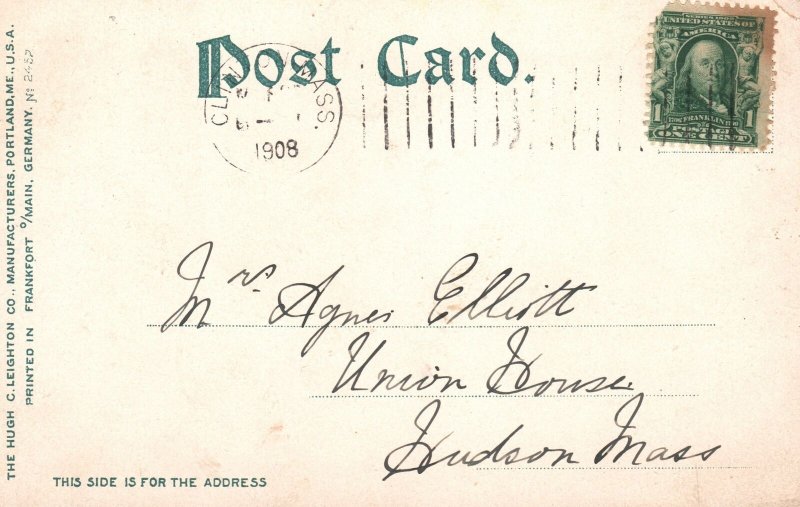 Post Card.
CLIN MASS.
1908
SERIES 1902
UNITED STATES OF
AMERICA
1 FRANKLIN 1
POSTAGE
ONE CENT
Mrs Agnes Elliott
Union House
Hudson Mass
THIS SIDE IS FOR THE ADDRESS
THE HUGH C. LEIGHTON CO., MANUFACTURERS, PORTLAND, ME., U.S.A.
PRINTED IN FRANKFORT o/MAIN, GERMANY. No 2432